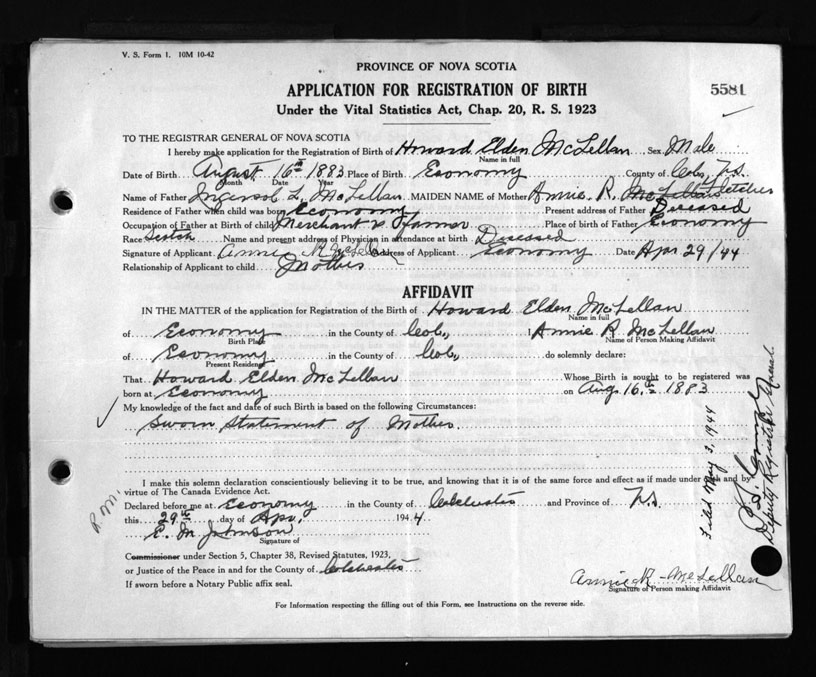 V. S. Form 1. 10M 10-42
PROVINCE OF NOVA SCOTIA
APPLICATION FOR REGISTRATION OF BIRTH
5581
Under the Vital Statistics Act, Chap. 20, R. S. 1923
TO THE REGISTRAR GENERAL OF NOVA SCOTIA
I hereby make application for the Registration of Birth of Howard Elden McLellan Sex Male
Name in full
Date of Birth August 16th 1883 Place of Birth Economy County of Col., N.S.
Month Date Year
Name of Father L. McLellan MAIDEN NAME of Mother Annie R. McLellan Fletcher
Residence of Father when child was born Economy Present address of Father Deseased
Occupation of Father at Birth of child Merchant & Farmer Place of birth of Father Economy
Race Scotch Name and present address of Physician in attendance at birth Deseased
Signature of Applicant Annie R McLellan Address of Applicant Economy Date Apr 29/44
Relationship of Applicant to child Mother
AFFIDAVIT
IN THE MATTER of the application for Registration of the Birth of Howard Elden McLellan
Name in full
of Economy in the County of Col., I Annie R. McLellan
Birth Place Name of Person Making Affidavit
of Economy in the County of Col., do solemnly declare:
Present Residence
That Howard Elden McLellan Whose Birth is sought to be registered was
born at Economy on Aug. 16th 1883
My knowledge of the fact and date of such Birth is based on the following Circumstances:
Sworn Statement of Mother.
I make this solemn declaration conscientiously believing it to be true, and knowing that it is of the same force and effect as if made under oath and by
virtue of The Canada Evidence Act.
Declared before me at Economy in the County of Colchester and Province of N.S.
this 29th day of Apr. 1944
E. M. Johnson
Signature of
Commissioner under Section 5, Chapter 38, Revised Statutes, 1923,
or Justice of the Peace in and for the County of Colchester
If sworn before a Notary Public affix seal.
Annie R McLellan
Signature of Person making Affidavit
For Information respecting the filling out of this Form, see Instructions on the reverse side.
P. M.
Filed May 3, 1944
Deputy Registrar General